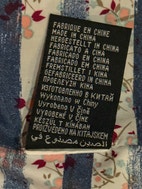 FABRIQUE EN CHINE
MADE IN CHINA
HERGESTELLT IN CHINA
FABRICATO A CINA
FABRICADO EN CHINA
FABRICADO EM CHINA
FREMSTILLET I KINA
GEFABRICEERD IN CHINA
ПРОИЗВЕДЕНО В КИТАЙ
ИЗГОТОВЛЕНО В КИТАЙ
Wykonano w Chiny
Vyrobeno V Číně
VYROBENÉ V ČÍNE
KÉSZÜLT KÍNÁBAN
PROIZVEDENO NA KITAJSKEM
الصين مصنوع في